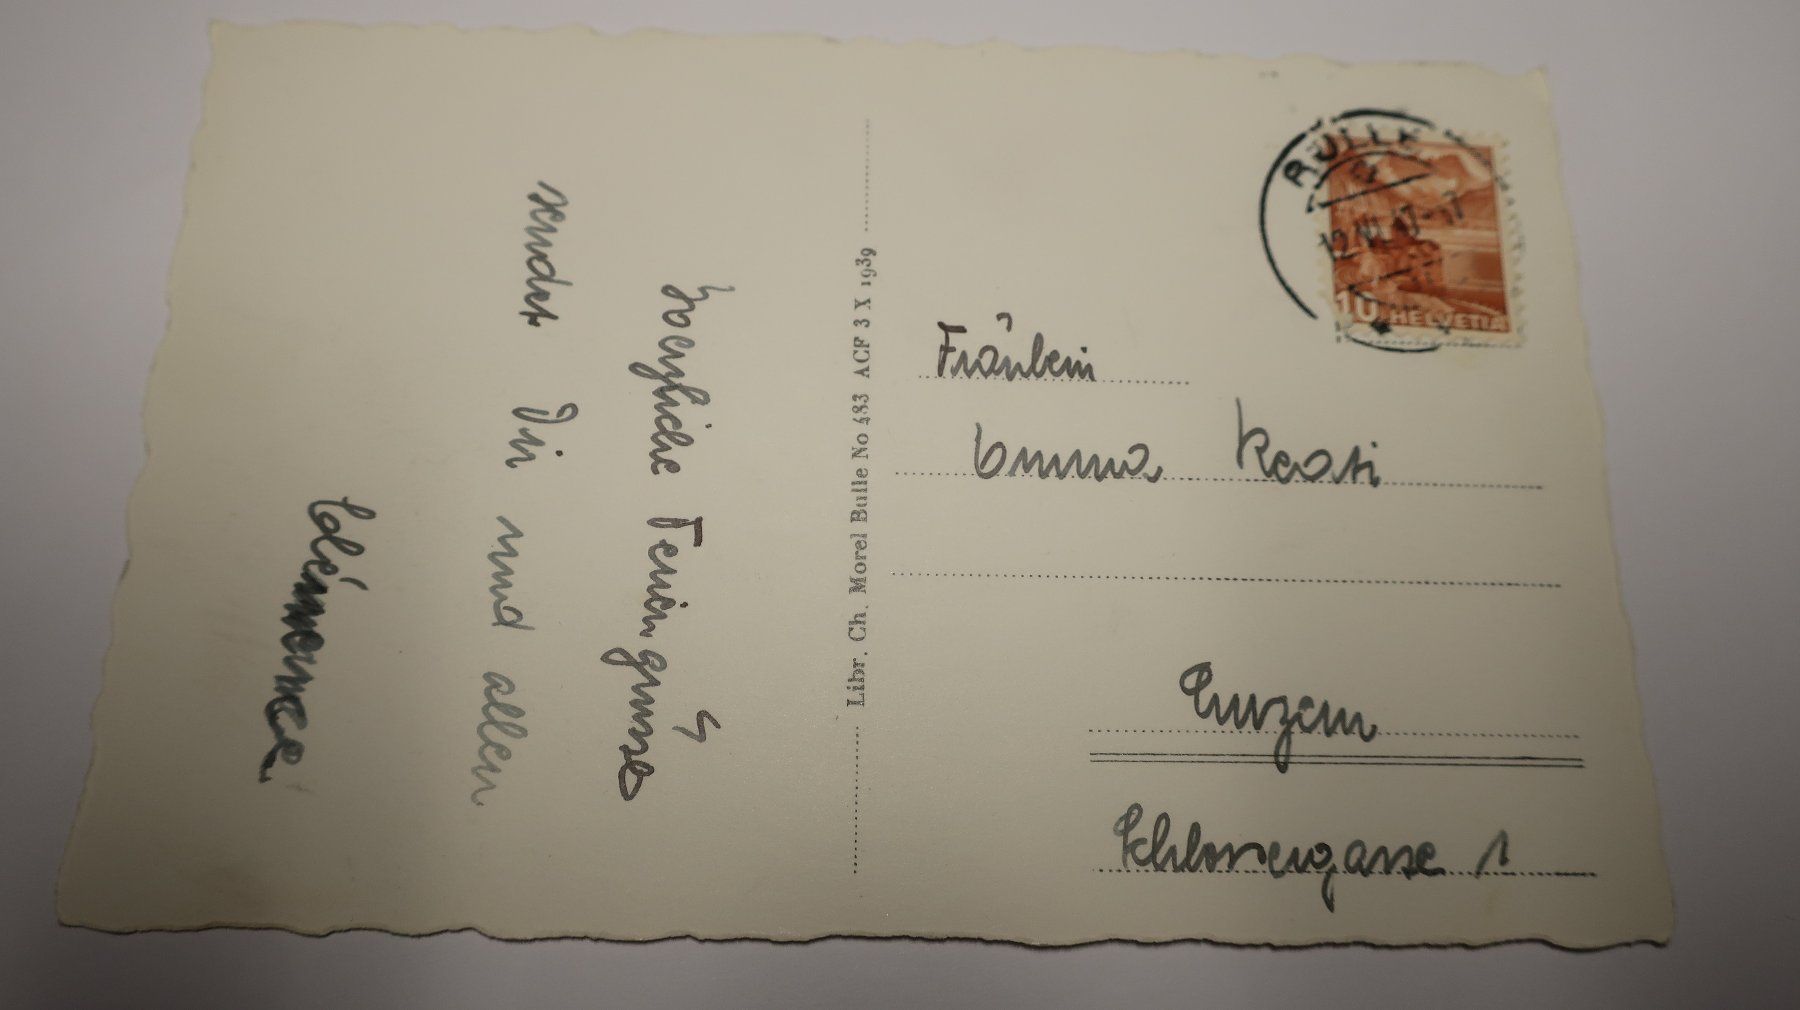 Herzliche Feriengrüsse
sendet Dir und allen
Clémence
Libr. Ch. Morel Bulle No 483 ACF 3 X 1939
10 HELVETIA
Fräulein
Emma
Luzern
Schlossergasse 1